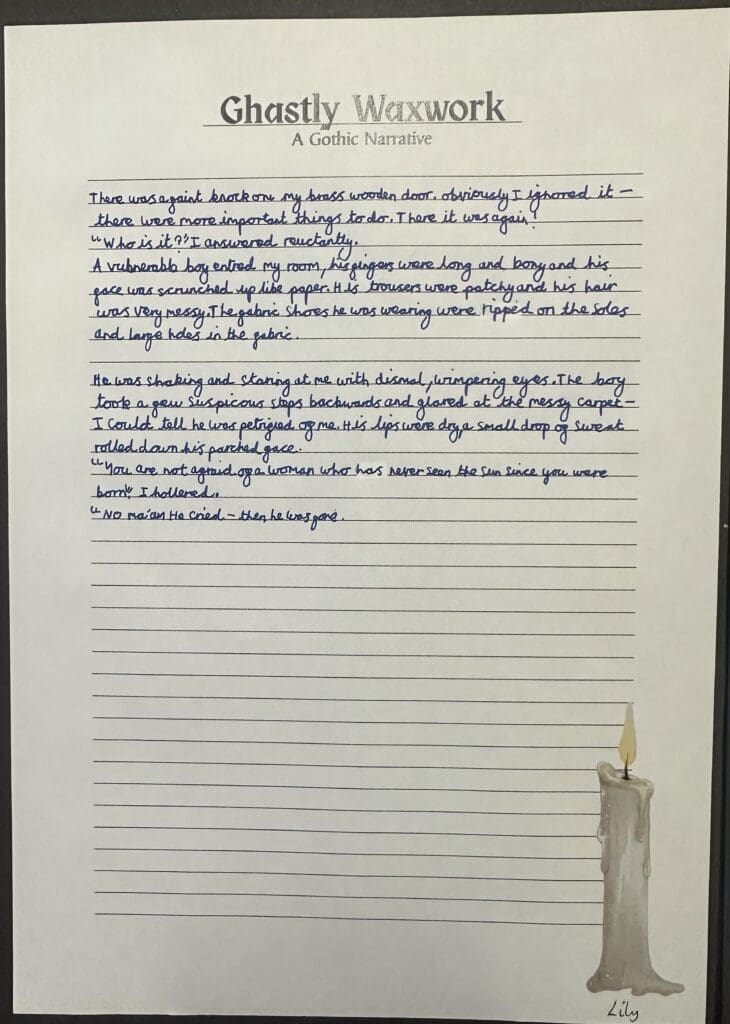 Ghastly Waxwork
A Gothic Narrative
There was a faint knock on my brass wooden door. obviously I ignored it –
there were more important things to do. There it was again!
"Who is it?" I answered reuctantly.
A vulnerable boy entred my room, his fingers were long and bony and his
face was scrunched up like paper. His trousers were patchy and his hair
was very messy. The fabric shoes he was wearing were ripped on the soles
and large holes in the fabric.
He was shaking and staring at me with dismal, wimpering eyes. The boy
took a few suspicous steps backwards and glared at the messy carpet –
I could tell he was petrified of me. His lips were dry, a small drop of sweat
rolled down his parched face.
"You are not afraid of a woman who has never seen the sun since you were
born" I hollered.
"No ma'am He cried – then he was gone.
Lily